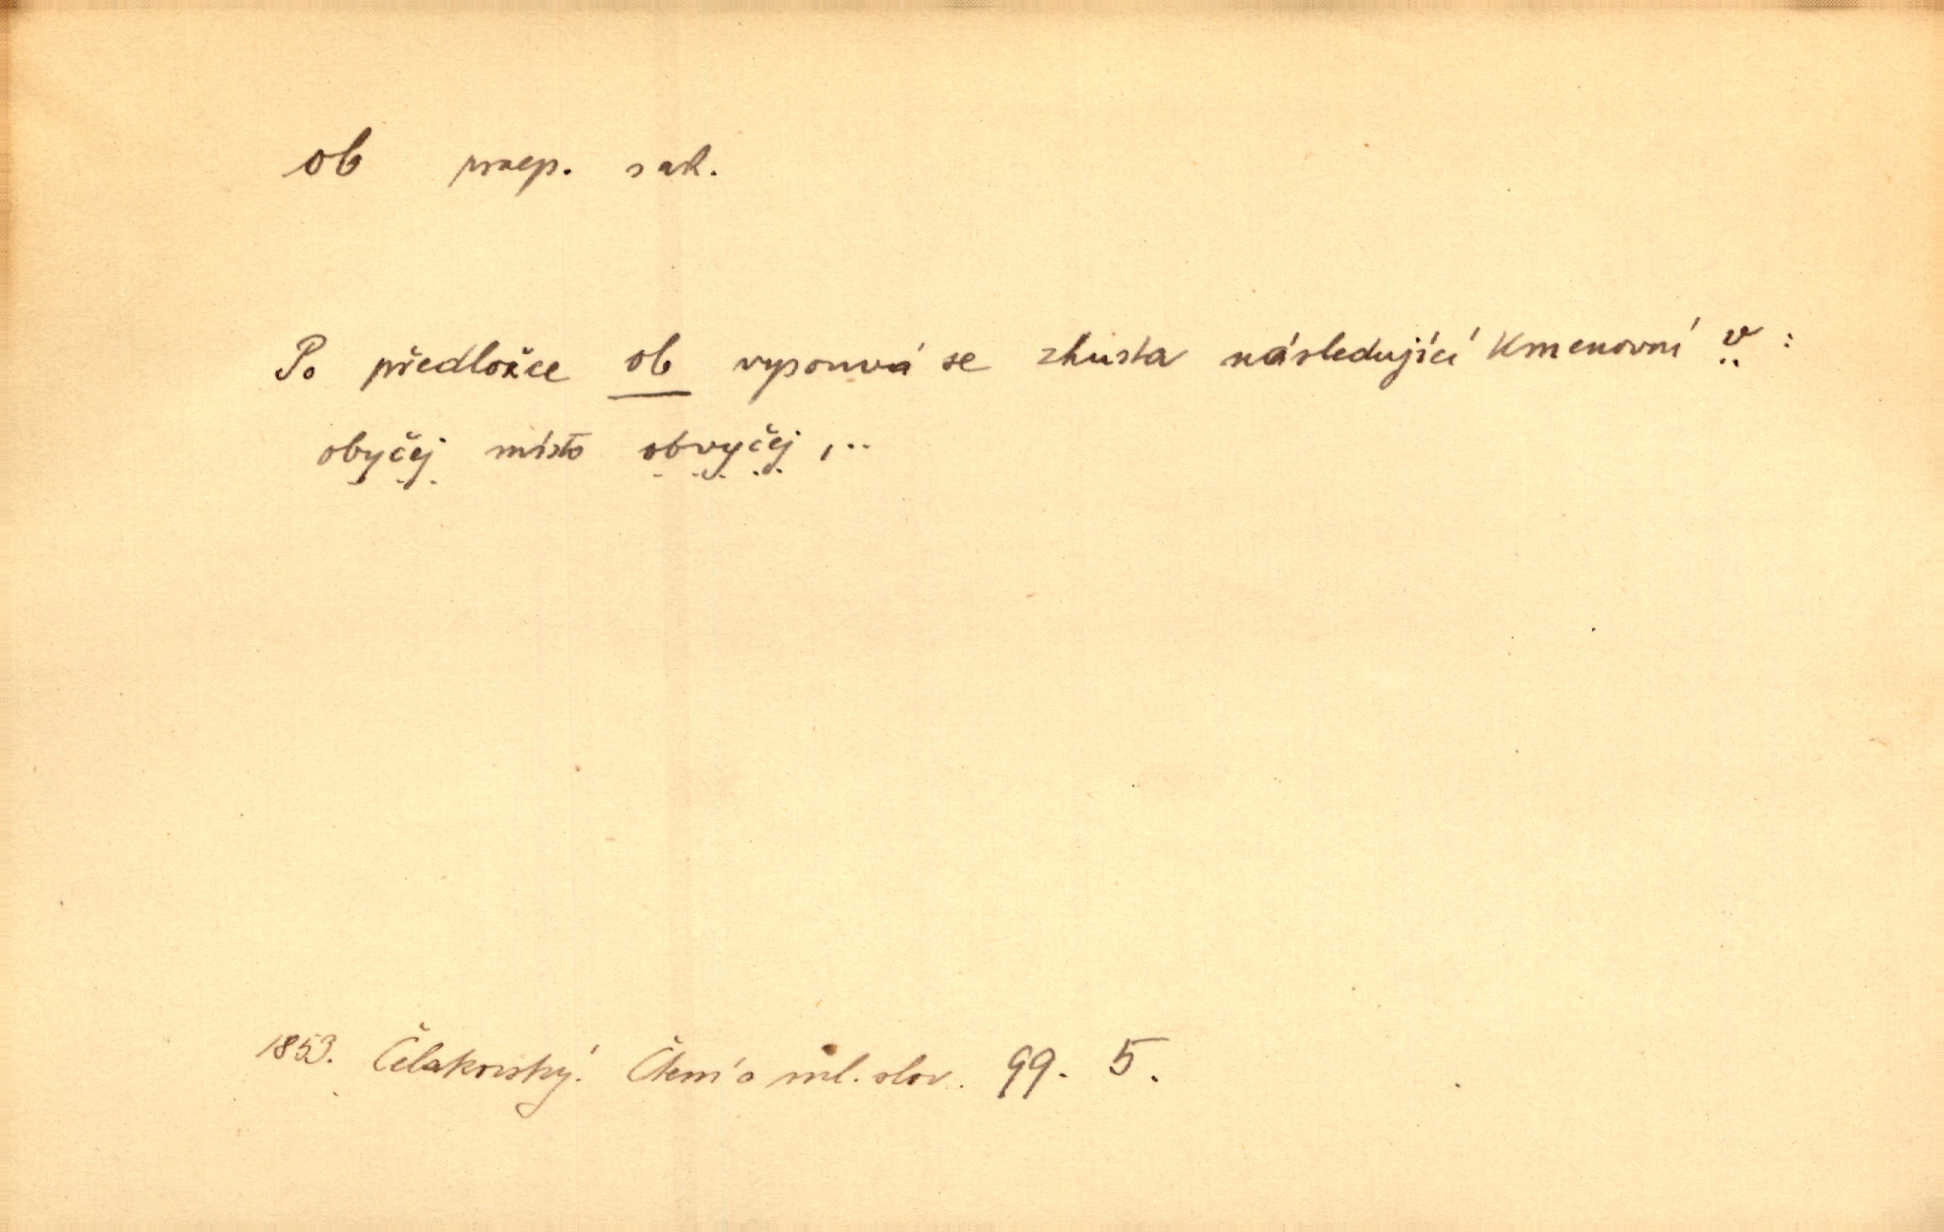 ob praep. s ak.
Po předložce ob vysouvá se zhusta následující kmenovní v :
obyčej místo obvyčej , ..
1853. Čelakovský. Čtení o ml. slov. 99. 5.